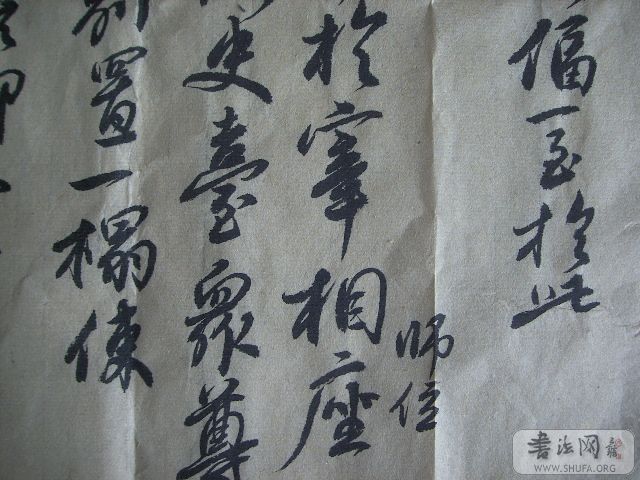 偪一至於此
師位
於宰相座
史臺眾尊
別置一榻使
書法网
WWW.SHUFA.ORG